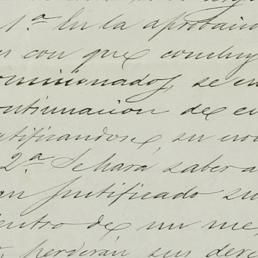 1.ª En la aprobació
es con que concluy
omisionados, se en
ontinuacion de e
atificandose, su no
2.ª Se hará saber a
an justificado su
entro de un me
perderán sus dere